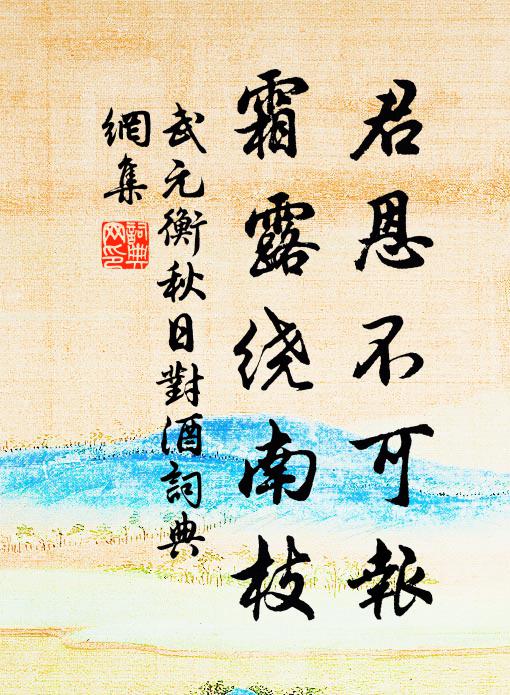 君恩不可報
霜露绕南枝
武元衡秋日對酒詞典
網集
詞典
网印